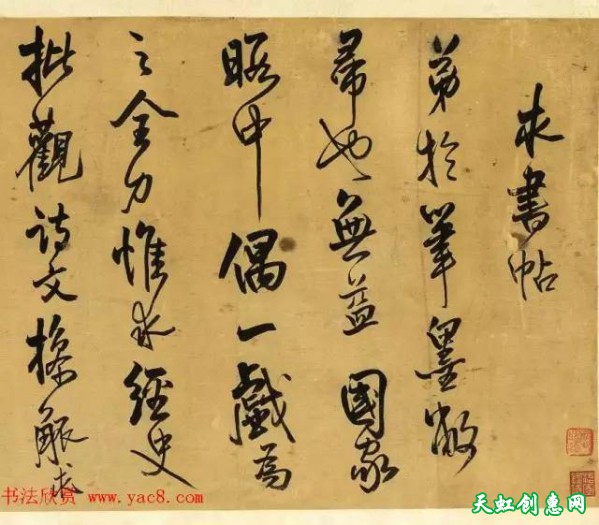 求書帖
弟於筆墨敝
帚也無益國家
暇中偶一戲為
之全力惟求經史
批觀詩文條解
书法欣赏 www.yac8.com
天虹创惠网